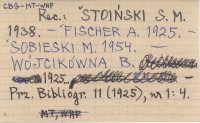 CBG-MT-WAP
Rec.: STOIŃSKI S. M.
1938. – FISCHER A. 1925. –
SOBIESKI M. 1954. –
WÓJCIKÓWNA B.
1925.
Prz. Bibliogr. 11 (1925), nr 1: 4.
MT, WAP